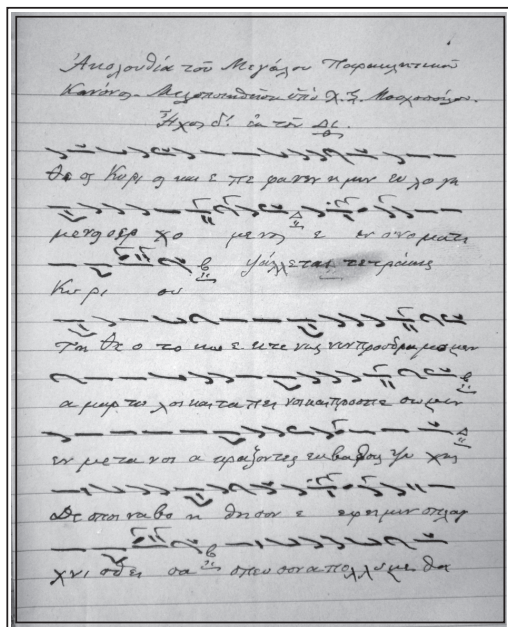 Ἀκολουθία τοῦ Μεγάλου Παρακλητικοῦ
Κανόνος Μελοποιηθεῖσα ὑπό
Ἦχος δ! ἐκ τοῦ Δι.
Θε ος Κυρι ος και ε πε φανεν η μιν ευ λο γη
μενοσερ χο μενος ε εν ονοματι
Κυρι ου ψάλλεται τετράκις
Τη Θε ο το κω ε κτε νως νυν προσδραμωμεν
α μαρ τω λοι και τα πει νοι και προσπε σωμεν
εν μετα νοι α κραζοντες εκ βαθους ψυ χης
Δεσ ποι να βο η θησον ε εφ ημιν σπλαγ
χνι σθει σα σπευ σον α πολ λυμε θα